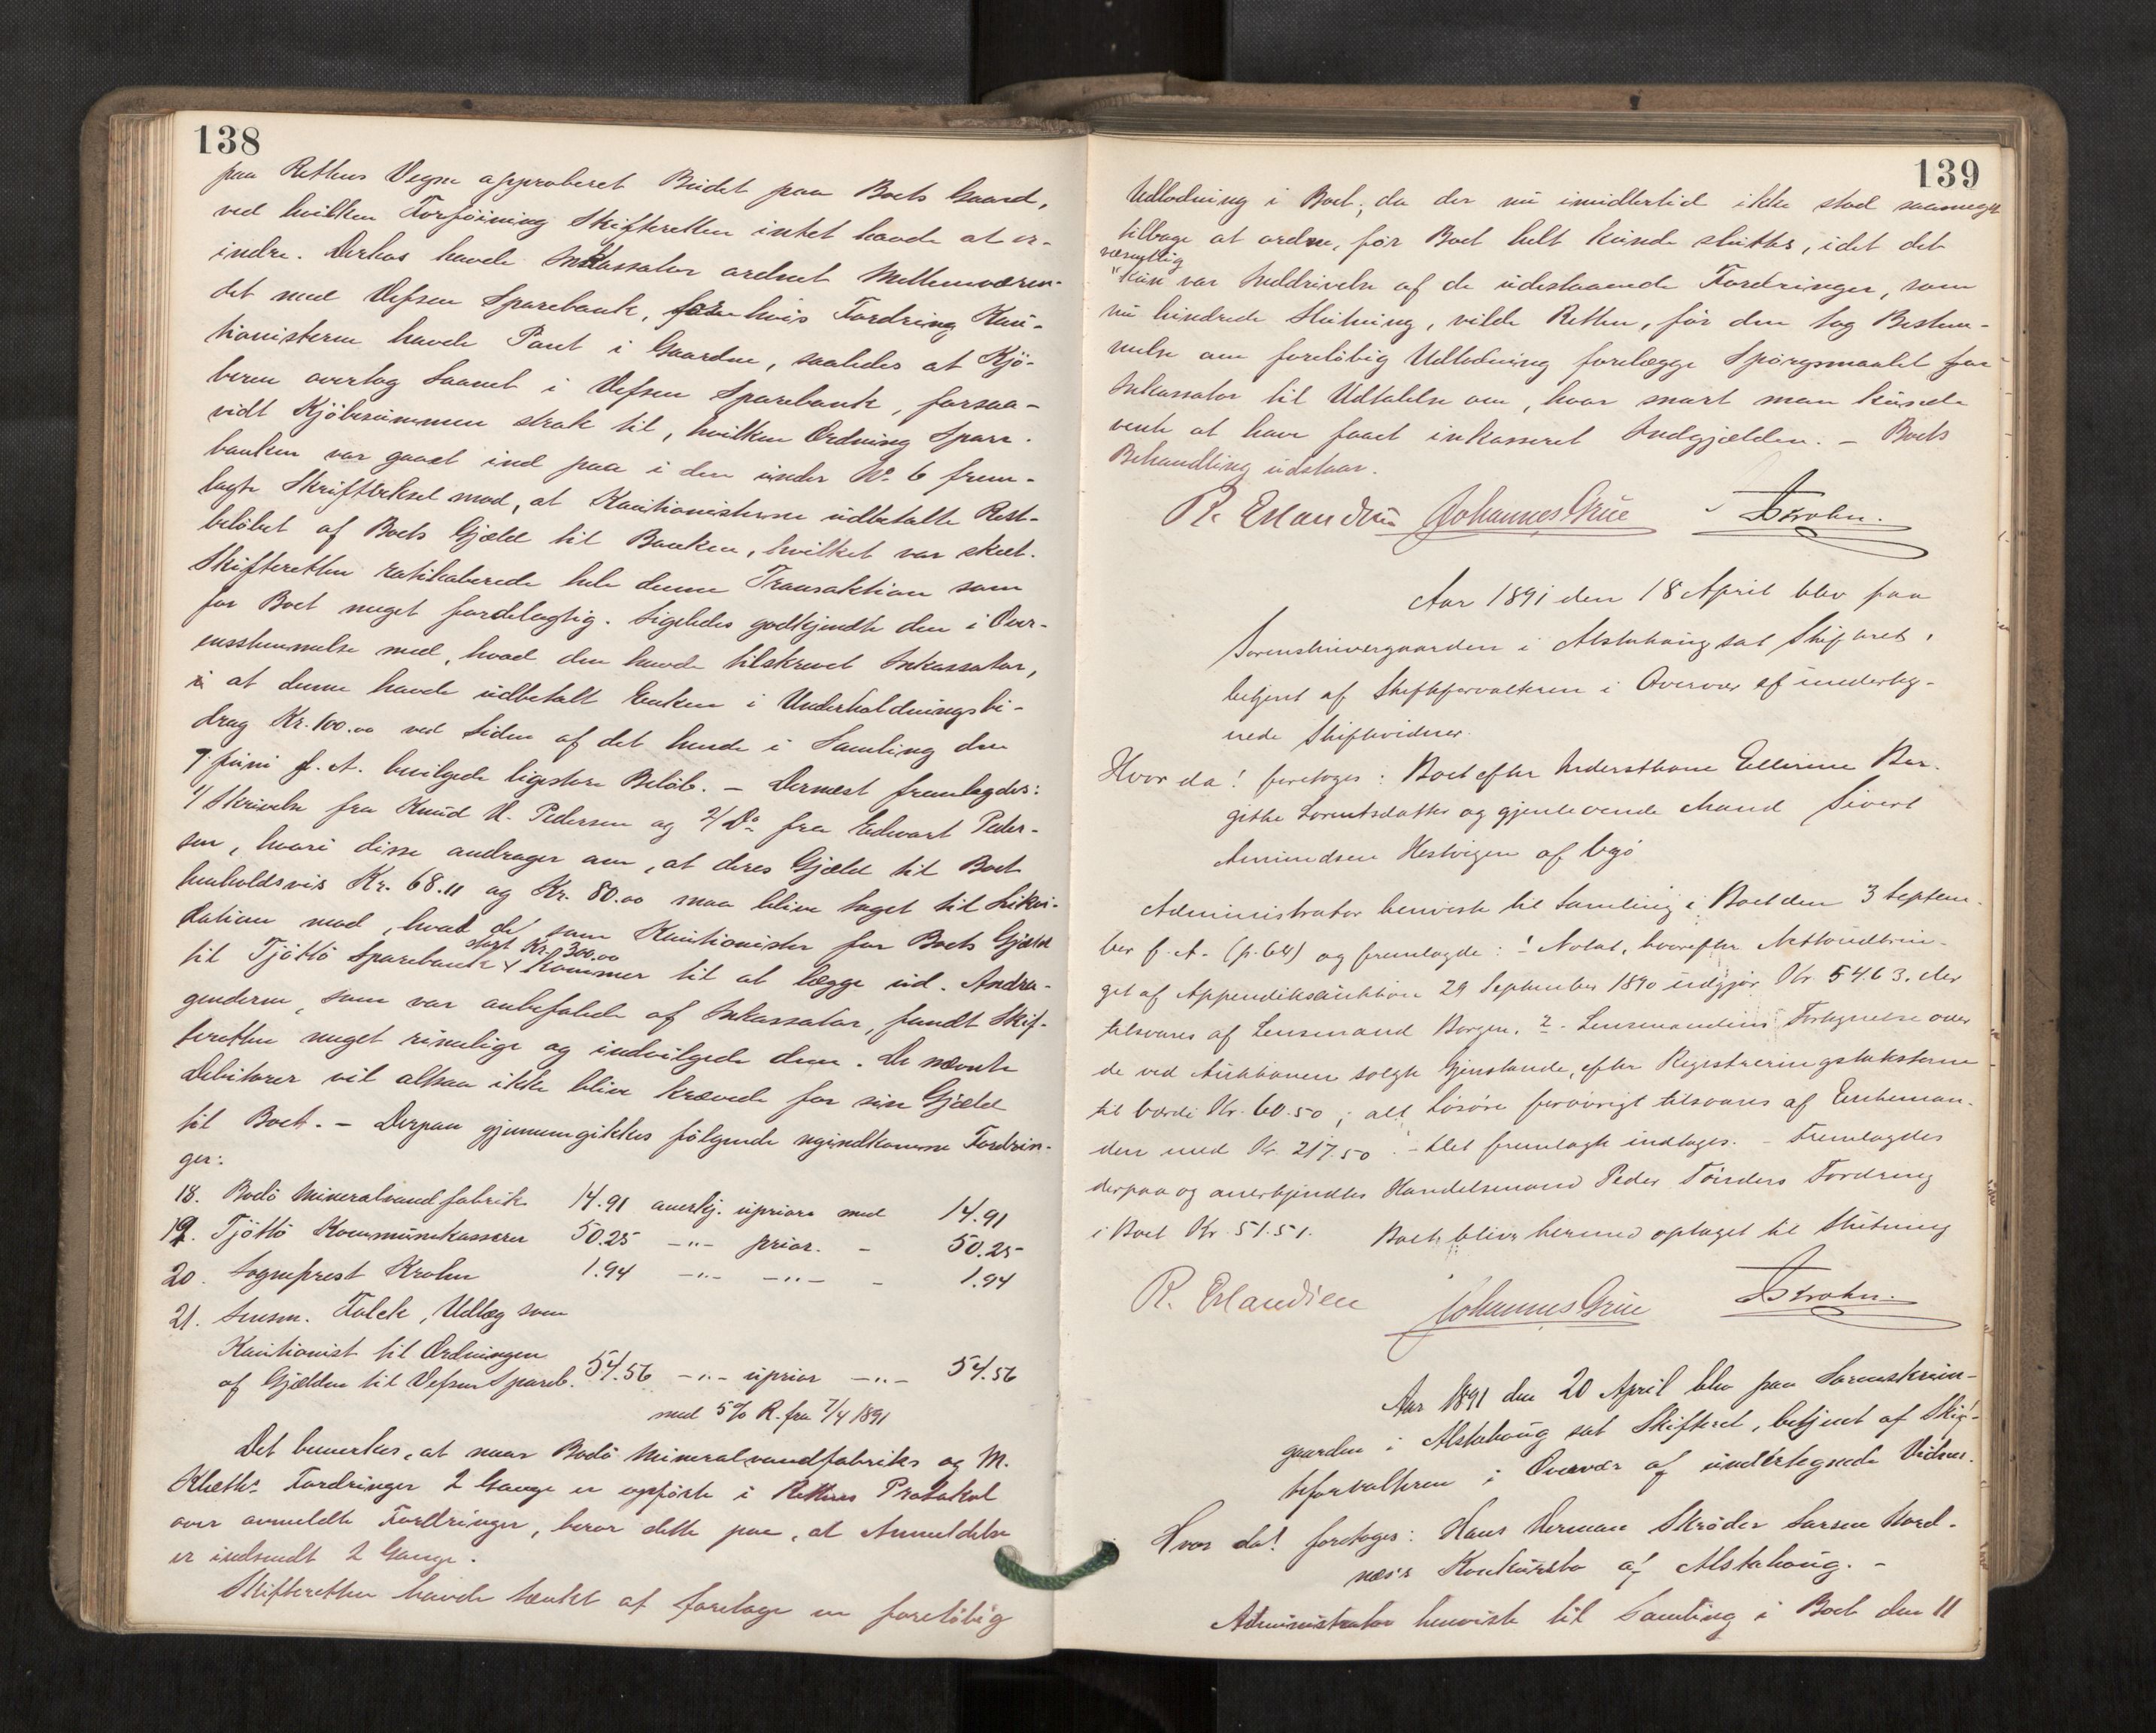 138
paa Rettens Vegne approberet Budet paa Boets Gaard,
ved hvilken Forføining Skifteretten intet havde at er-
indre. Derhos havde Inkassator ordnet Mellemværen-
det med Vefsen Sparebank, for hvis Fordring Kau-
tionisterne havde Pant i Gaarden, saaledes at Kjö-
beren overtog Laanet i Vefsen Sparebank, forsaa-
vidt Kjöbesummen strak til, hvilken Ordning Spare-
banken var gaaet ind paa i den under No 6 frem-
lagte Skriftveksel mod, at Kautionisterne udbetalte Rest-
belöbet af Boets Gjæld til Banken, hvilket var skeet.
Skifteretten ratihaberede hele denne Transaktion som
for Boet meget fordelagtig. Ligeledes godkjendte den i Over-
ensstemmelse med, hvad den havde tilskrevet Inkassator,
at denne havde udbetalt Enken i Underholdningsbi-
drag Kr. 100.00 ved Siden af det hende i Samling den
7 Juni f. A. bevilgede ligestore Belöb. – Dernæst fremlagdes:
1/ Skrivelse fra Knud H. Pedersen og 2/ Do fra Edvart Peder-
sen, hvori disse andrager om, at deres Gjæld til Boet
henholdsvis Kr. 68.11 og Kr. 80.00 maa blive taget til Likvi-
dation mod, hvad de som Kautionister for Boets Gjæld
stort Kr. 300.00
til Tjöttö Sparebank kommer til at lægge ud. Andra-
genderne, som var anbefalede af Inkassator, fandt Skif-
teretten meget rimelige og indvilgede dem. De nævnte
Debitorer vil altsaa ikke blive krævede for sin Gjæld
til Boet. – Derpaa gjennemgikkes fölgende nyindkomne Fordrin-
ger:
18. Bodö Mineralvandfabrik 14.91 anerkj. uprior. med 14.91
19. Tjöttö Kommunekasserer 50.25 –"– prior. – 50.25
20. Sogneprest Krohn 1.94 –"– –"– – 1.94
21. Lensm. Falch, Udlæg som
Kautionist til Ordningen
af Gjælden til Vefsen Spareb. 54.56 –"– uprior –"– 54.56
med 5% R. fra 7/4 1891
Det bemerkes, at naar Bodö Mineralvandfabriks og M.
Klæths Fordringer 2 Gange er opförte i Rettens Protokol
over anmeldte Fordringer, beror dette paa, at Anmeldelse
er indsendt 2 Gange.
Skifteretten havde tænkt at foretage en forelöbig
139
Udlodning i Boet; da der nu imidlertid ikke stod saameget
tilbage at ordne, för Boet helt kunde sluttes, idet det
væsentlig
kun var Inddrivelse af de udestaaende Fordringer, som
nu hindrede Slutning, vilde Retten, för den tog Bestem-
melse om forelöbig Udlodning forelægge Spörgsmaalet for
Inkassator til Udtalelse om, hvor snart man kunde
vente at have faaet inkasseret Indgjælden. – Boets
Behandling udstaar.
R. Erlandsen Johannes Grue Krohn.
Aar 1891 den 18 April blev paa
Sorenskrivergaarden i Alstahaug sat Skifteret,
betjent af Skifteforvalteren i Overvær af underteg-
nede Skiftevidner.
Hvor da! foretoges: Boet efter Indersthone Ellerine Ber-
githe Lorentsdatter og gjenlevende Mand Sivert
Amundsen Hestvigen af Vegö
Administrator henviste til Samling i Boet den 3 Septem-
ber f. A. (p. 64) og fremlagde: 1 Notat, hvorefter Nettoudbrin-
get af Appendiksauktion 29 September 1890 udgjör Kr 54.63, der
tilsvares af Lensmand Borgen. 2. Lensmandens Fortegnelse over
de ved Auktionen solgte Gjenstande, efter Registreringstaksterne
til Værdi Kr. 60.50; alt Lösöre forövrigt tilsvares af Enkeman-
den med Kr. 217.50. – Det fremlagte indtages. – Fremlagdes
derpaa og anerkjendtes Handelsmand Peder Tönders Fordring
i Boet Kr. 51.51. Boet bliver hermed optaget til Slutning
R. Erlandsen Johannes Grue Krohn.
Aar 1891 den 20 April blev paa Sorenskriver-
gaarden i Alstahaug sat Skifteret, betjent af Skif-
teforvalteren i Overvær af undertegnede Vidner.
Hvor da! foretoges: Hans Herman Skröder Larsen Nord-
næs's Konkursbo af Alstahaug. –
Administrator henviste til Samling i Boet den 11